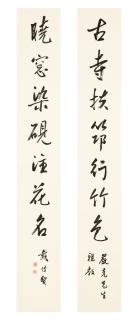 古寺扶筇行竹色
嚴克先生
雅教
曉窗染硯注花名
戴傳賢